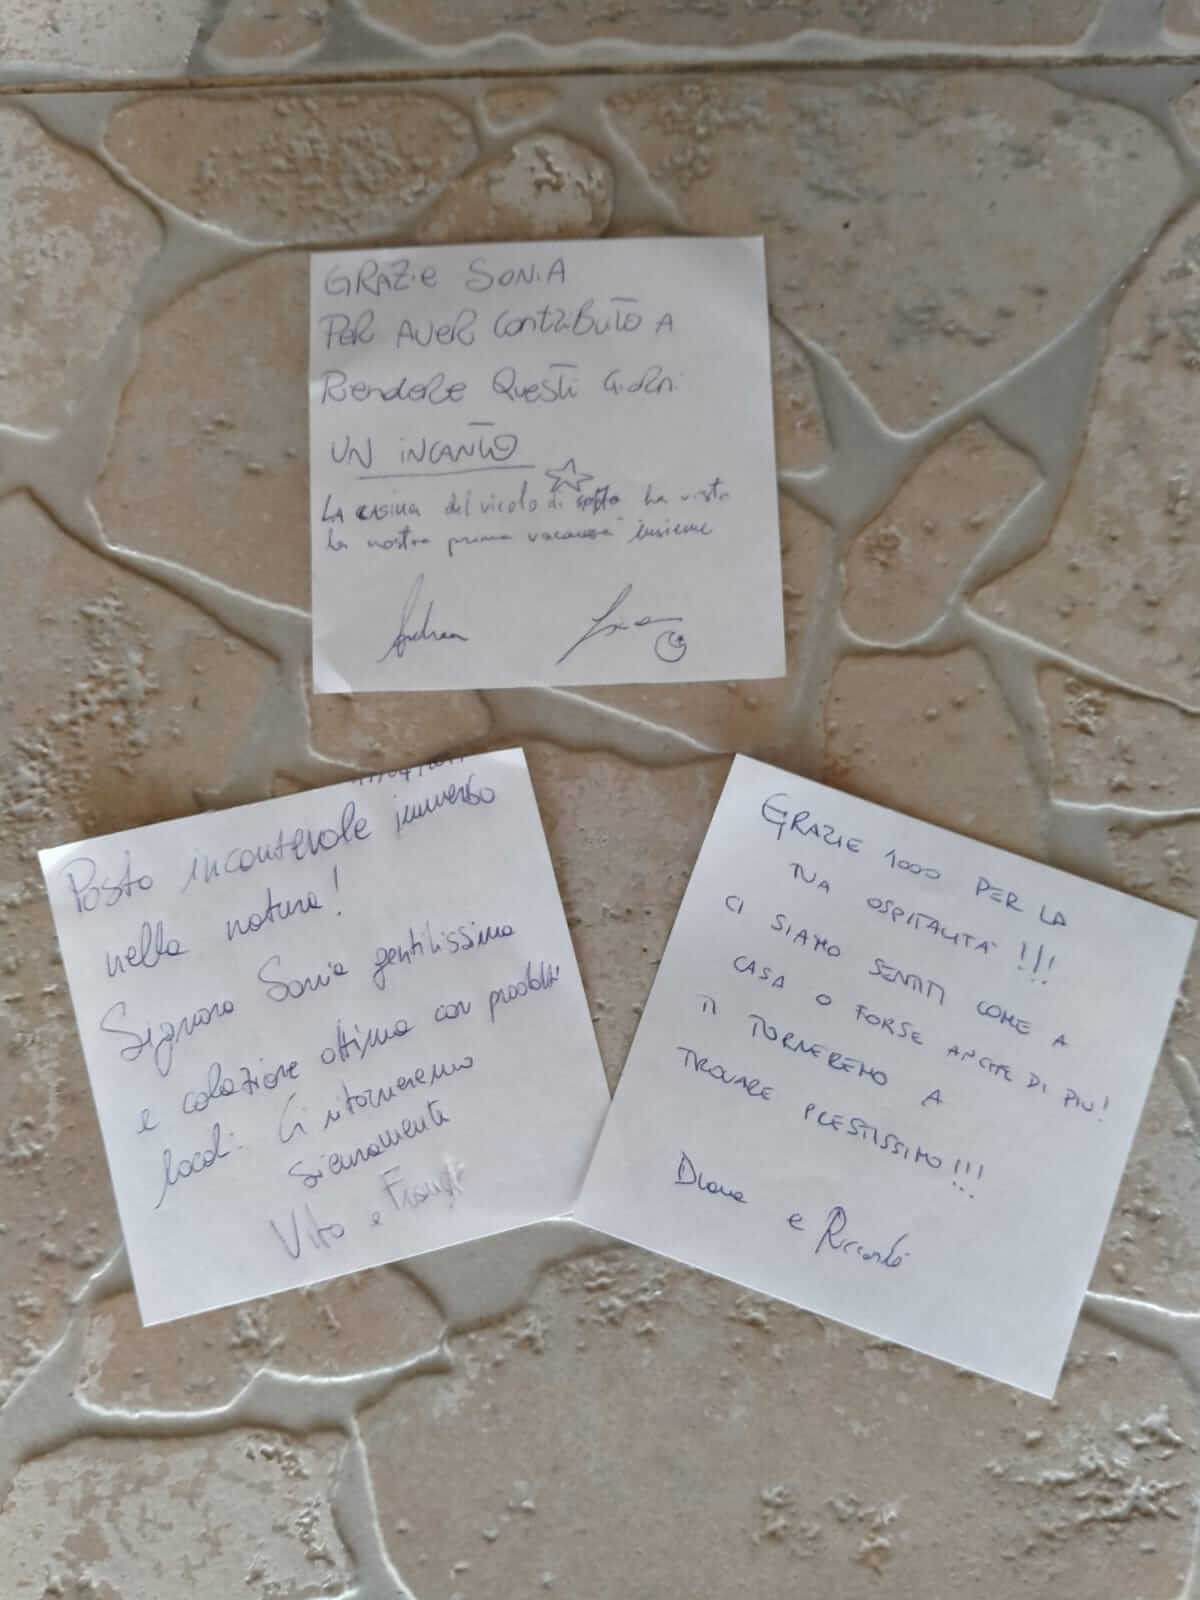 GRAZIE SONIA
PER AVER CONTRIBUITO A
RENDERE QUESTI GIORNI
UN INCANTO
LA casina del vicolo di sotto ha visto
la nostra prima vacanza insieme
Andrea
Posto incantevole immerso
nella natura!
Signora Sonia gentilissima
e colazione ottima con prodotti
locali. Ci ritorneremo
sicuramente
Vito e
GRAZIE 1000 PER LA
TUA OSPITALITA' !!!
CI SIAMO SENTITI COME A
CASA O FORSE ANCHE DI PIU!
TI TORNEREMO A
TROVARE PRESTISSIMO!!!
Diana e Riccardo